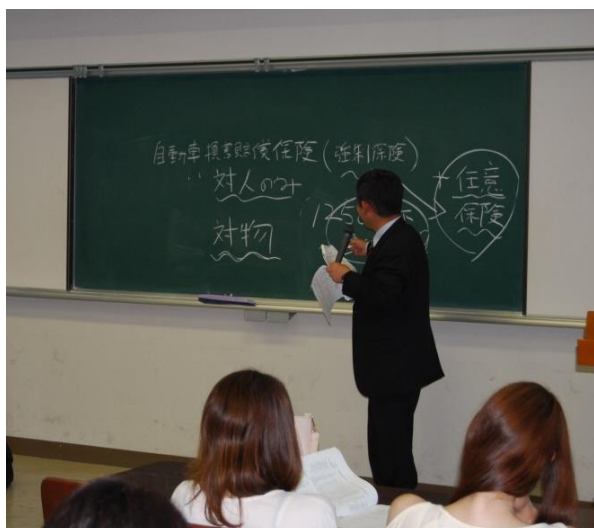 自動車損害賠償保険(強制保険)
対人のみ
対物
+任意
保険